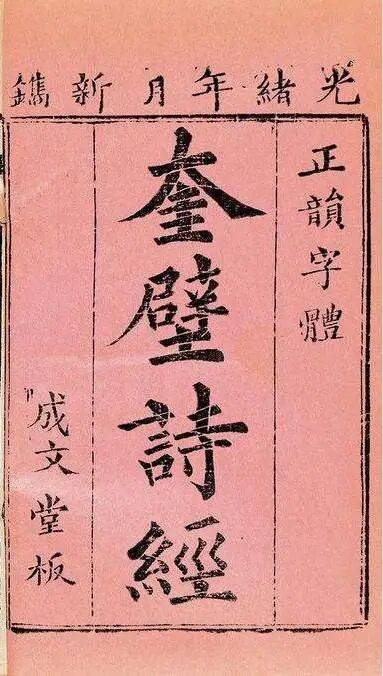 光緒年月新鐫
正韻字體
奎壁詩經
成文堂板